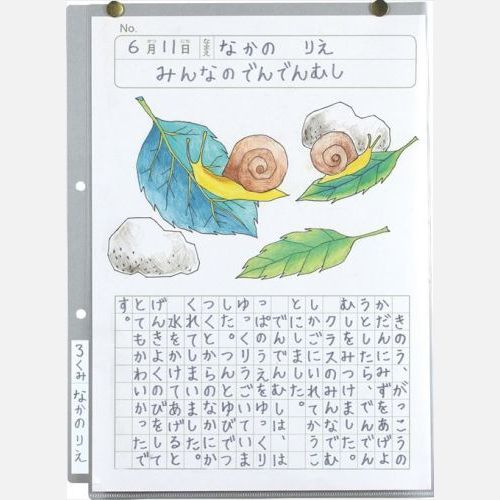 No.
6月11日 なまえ なかの りえ
みんなのでんでんむし
きのう、がっこうの
かだんにみずをあげよ
うとしたら、でんでん
むしをみつけました。
クラスのみんなでむ
しかごにいれてかうこ
とにしました。
でんでんむしは、は
っぱのうえをゆっくり
ゆっくりうごいていま
した。つんとゆびでつ
つくとからのなかにか
くれてしまいました。
水をかけてあげると
げんきよくのびをして
とてもかわいかったで
す。
3くみ なかの りえ